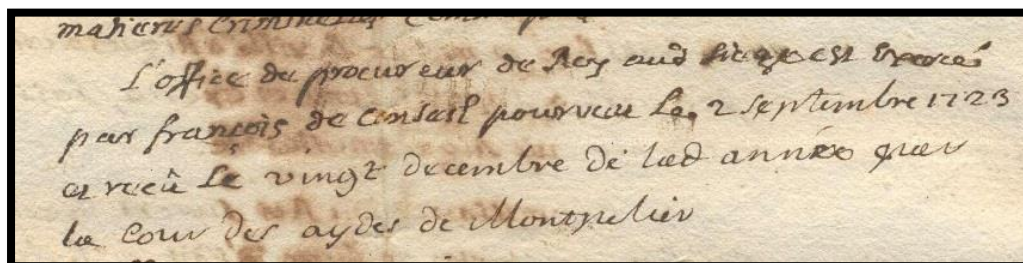 matieres criminelles comme
L'office de procureur de Roy aud siege est exercé
par françois de Conseil pourveu le 2 septembre 1723
et receû le vingt decembre de lad année par
la cour des aydes de Montpelier